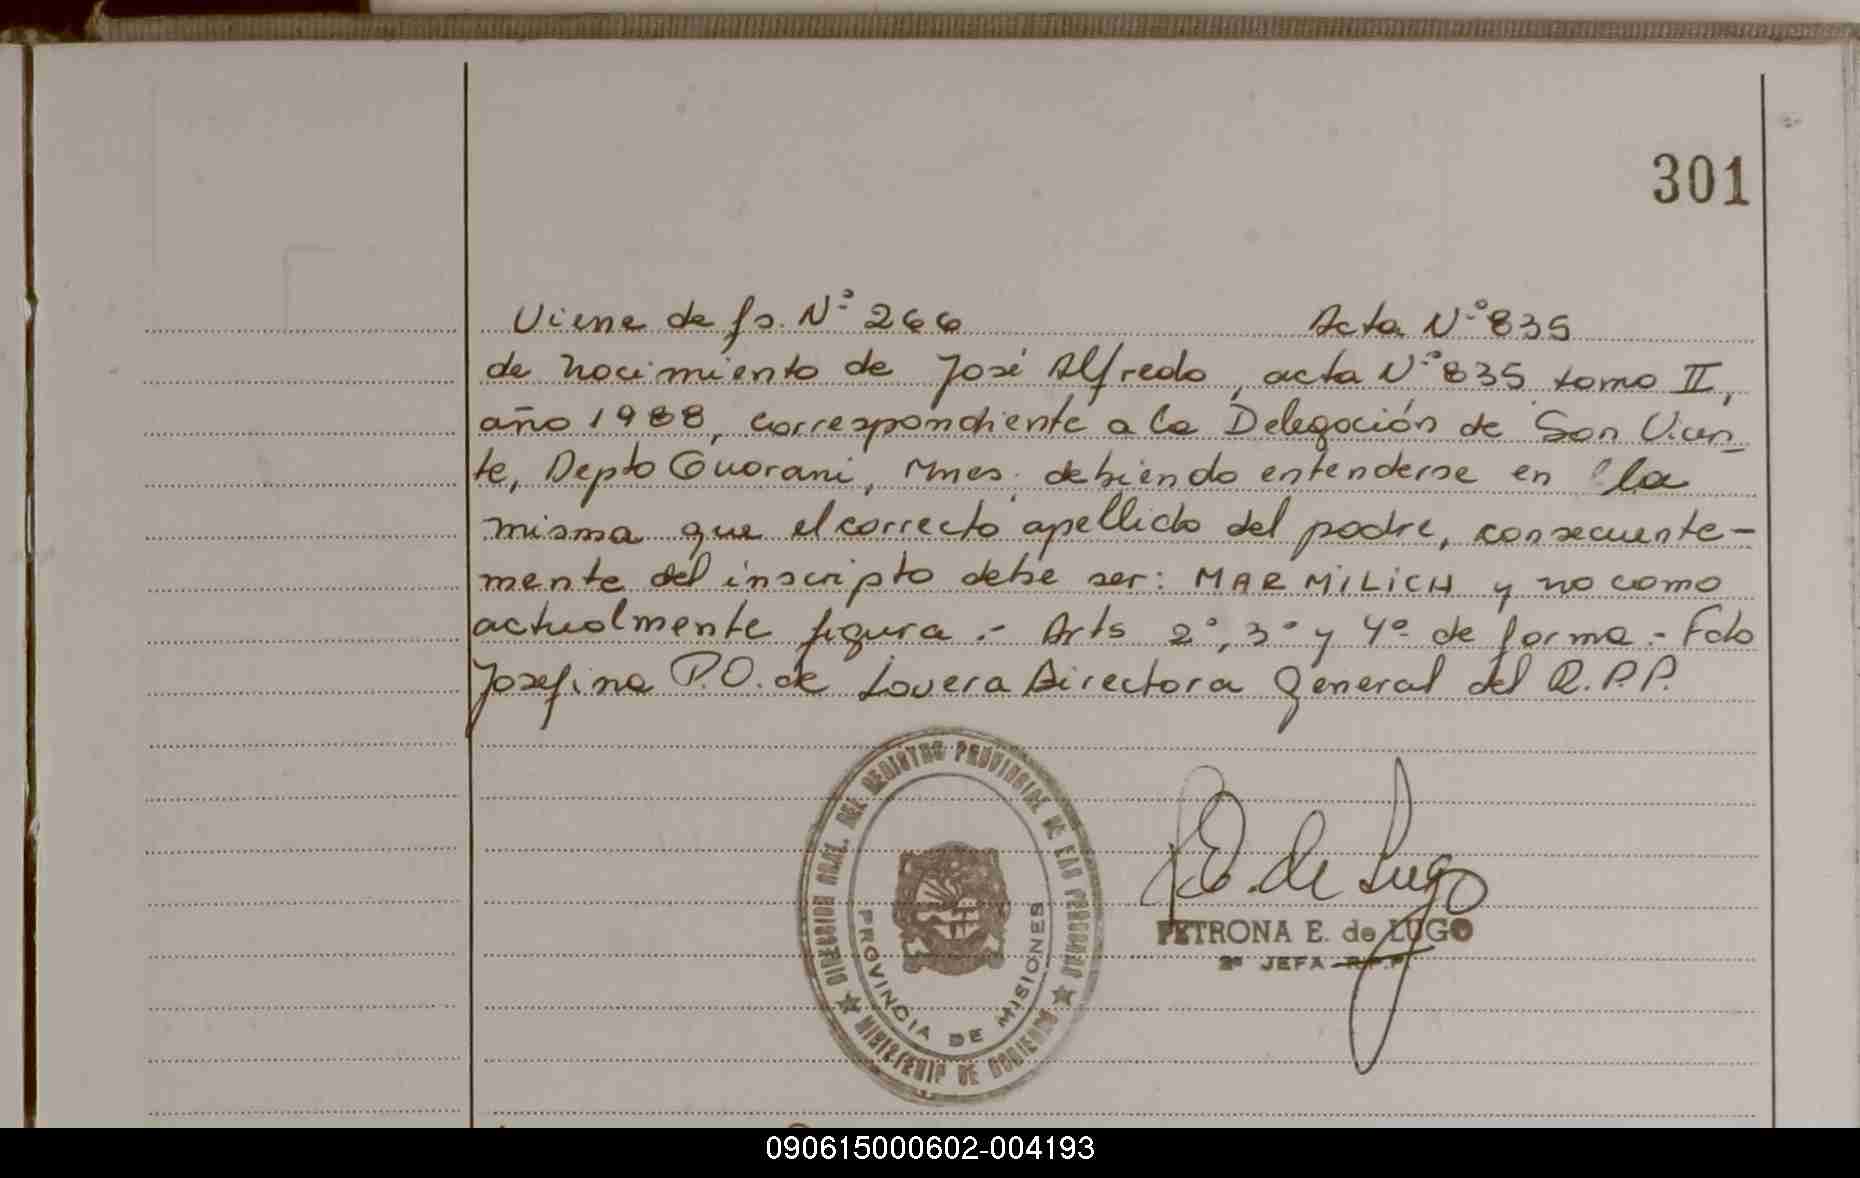 301
Viene de fs. Nº 266 Acta Nº 835
de nacimiento de José Alfredo, acta Nº 835 tomo II,
año 1988, correspondiente a la Delegación de San Vicen
te, Depto Guarani, Mnes. debiendo entenderse en la
misma que el correcto apellido del padre, consecuente-
mente del inscripto debe ser: MARMILICH y no como
actualmente figura.- Arts 2º, 3º y 4º de forma.- Fdo
Josefina P.O. de Lovera Directora General del R.P.P.
DIRECCION GRAL. DEL REGISTRO PROVINCIAL DE LAS PERSONAS
PROVINCIA DE MISIONES
MINISTERIO DE GOBIERNO
P.E. de Lugo
PETRONA E. de LUGO
2ª JEFA R.P.P.
090615000602-004193